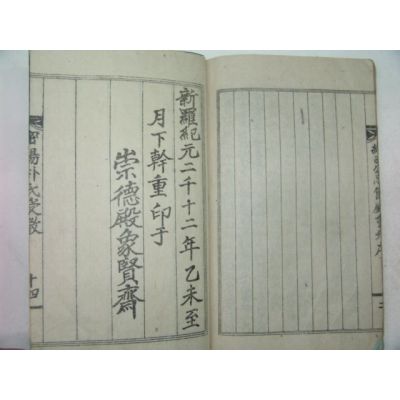 新羅紀元二千十二年乙未至
月下幹重印于
崇德殿象賢齋
十四